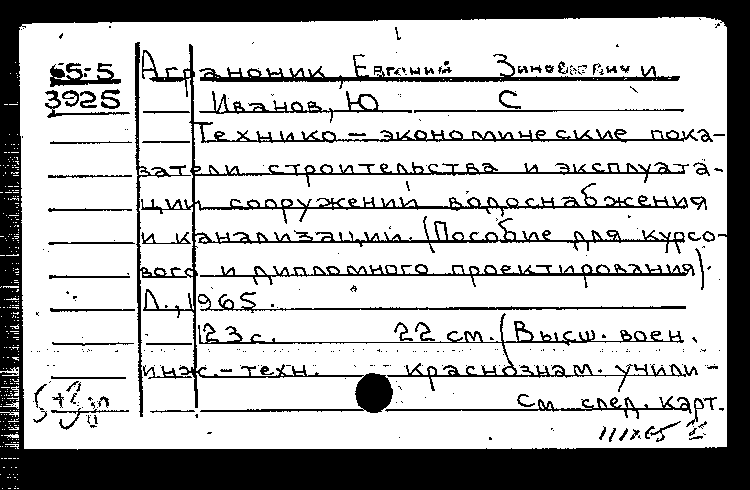 65-5 Аграноник, Евгений Зиновьевич и
3925 Иванов, Ю С
Технико-экономические пока-
затели строительства и эксплуата-
ции сооружений водоснабжения
и канализации. (Пособие для курсо-
вого и дипломного проектирования).
Л., 1965.
123 с. 22 см. (Высш. воен.
инж.-техн. краснознам. учили-
см. след. карт.